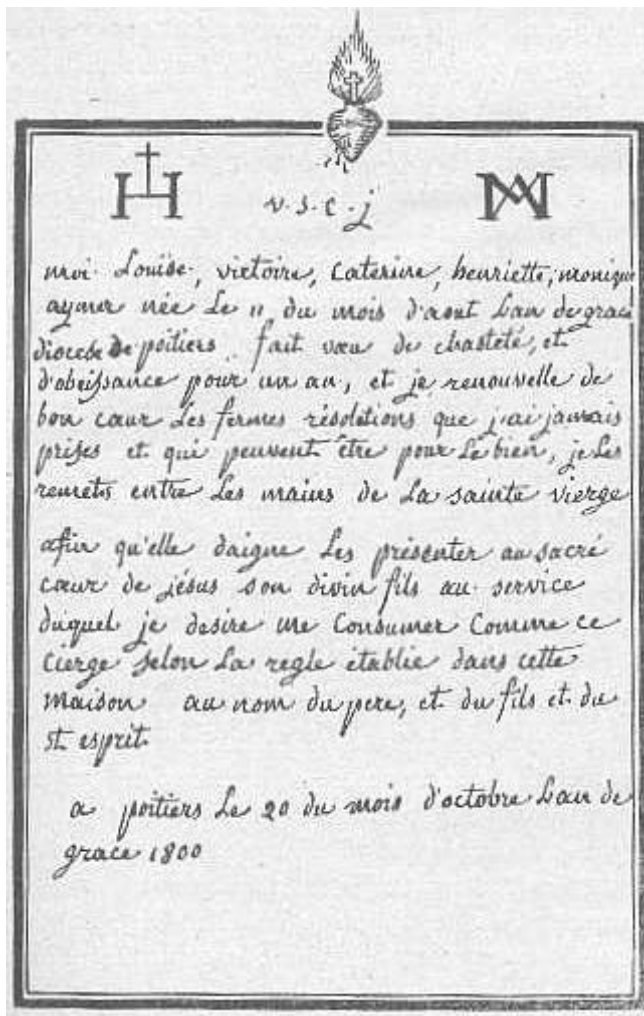 v. s. c. j
moi Louise, victoire, Caterine, henriette, monique
aymer née Le 11 du mois d'aout L'an de grace
diocese de poitiers fait vœu de chasteté, et
d'obeissance pour un an, et je renouvelle de
bon cœur Les fermes résolutions que j'ai jamais
prises et qui peuvent être pour Le bien, je Les
remets entre Les mains de La sainte vierge
afin qu'elle daigne Les présenter au sacré
cœur de jésus son divin fils au service
duquel je desire me Consumer Comme ce
Cierge selon La regle établie dans cette
maison au nom du pere, et du fils et du
st esprit
a poitiers Le 20 du mois d'octobre L'an de
grace 1800